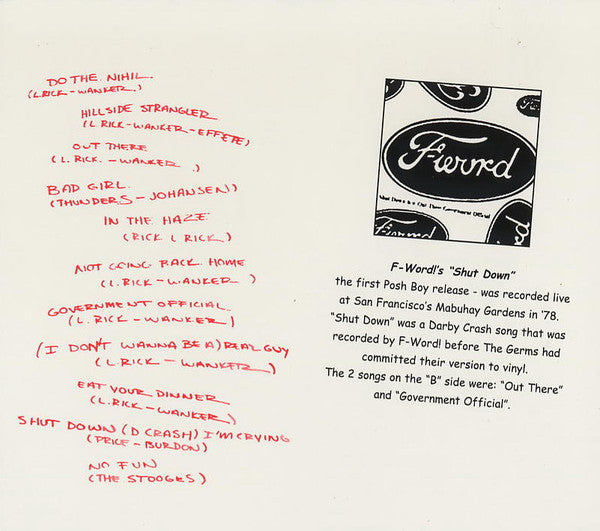 DO THE NIHIL.
(L.RICK - WANKER.)
HILLSIDE STRANGLER
(L. RICK - WANKER - EFFETE)
OUT THERE
(L. RICK. - WANKER .)
BAD GIRL.
(THUNDERS - JOHANSEN)
IN THE HAZE
(RICK L RICK.)
NOT GOING BACK HOME
(L. RICK - WANKER)
GOVERNMENT OFFICIAL.
(L. RICK - WANKER)
(I DON'T WANNA BE A) REAL GUY
(L RICK - WANKER)
EAT YOUR DINNER
(L.RICK - WANKER)
SHUT DOWN (D CRASH) I'M CRYING
(PRICE - BURDON)
NO FUN
(THE STOOGES)
Fword
Shut Down b/w Out There Government Official
F-Word!'s "Shut Down"
the first Posh Boy release - was recorded live
at San Francisco's Mabuhay Gardens in '78.
"Shut Down" was a Darby Crash song that was
recorded by F-Word! before The Germs had
committed their version to vinyl.
The 2 songs on the "B" side were: "Out There"
and "Government Official".